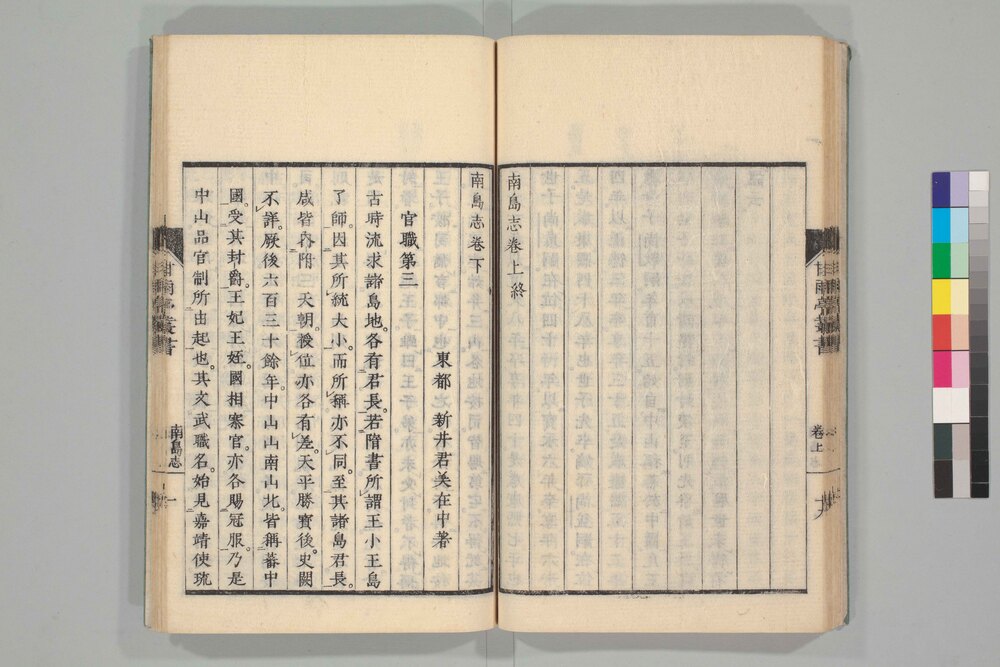 南島志卷上終
甘雨亭叢書
卷上
南島志卷下
東都 新井君美在中著
官職第三
古時流求諸島地。各有君長。若隋書所謂王小王島
了師。因其所統大小。而所稱亦不同。至其諸島君長。
咸皆內附天朝。授位亦各有差。天平勝寶後。史闕
不詳。厥後六百三十餘年。中山山南山北。皆稱蕃中
國。受其封爵。王妃王姪。國相寨官。亦各賜冠服。乃是
中山品官制所由起也。其文武職名。始見嘉靖使琉
甘雨亭叢書
南島志
一